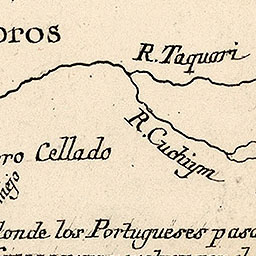 oros
R. Taquari
R. Cuchiym
ro Cellado
nejo
donde los Portugueses pasa